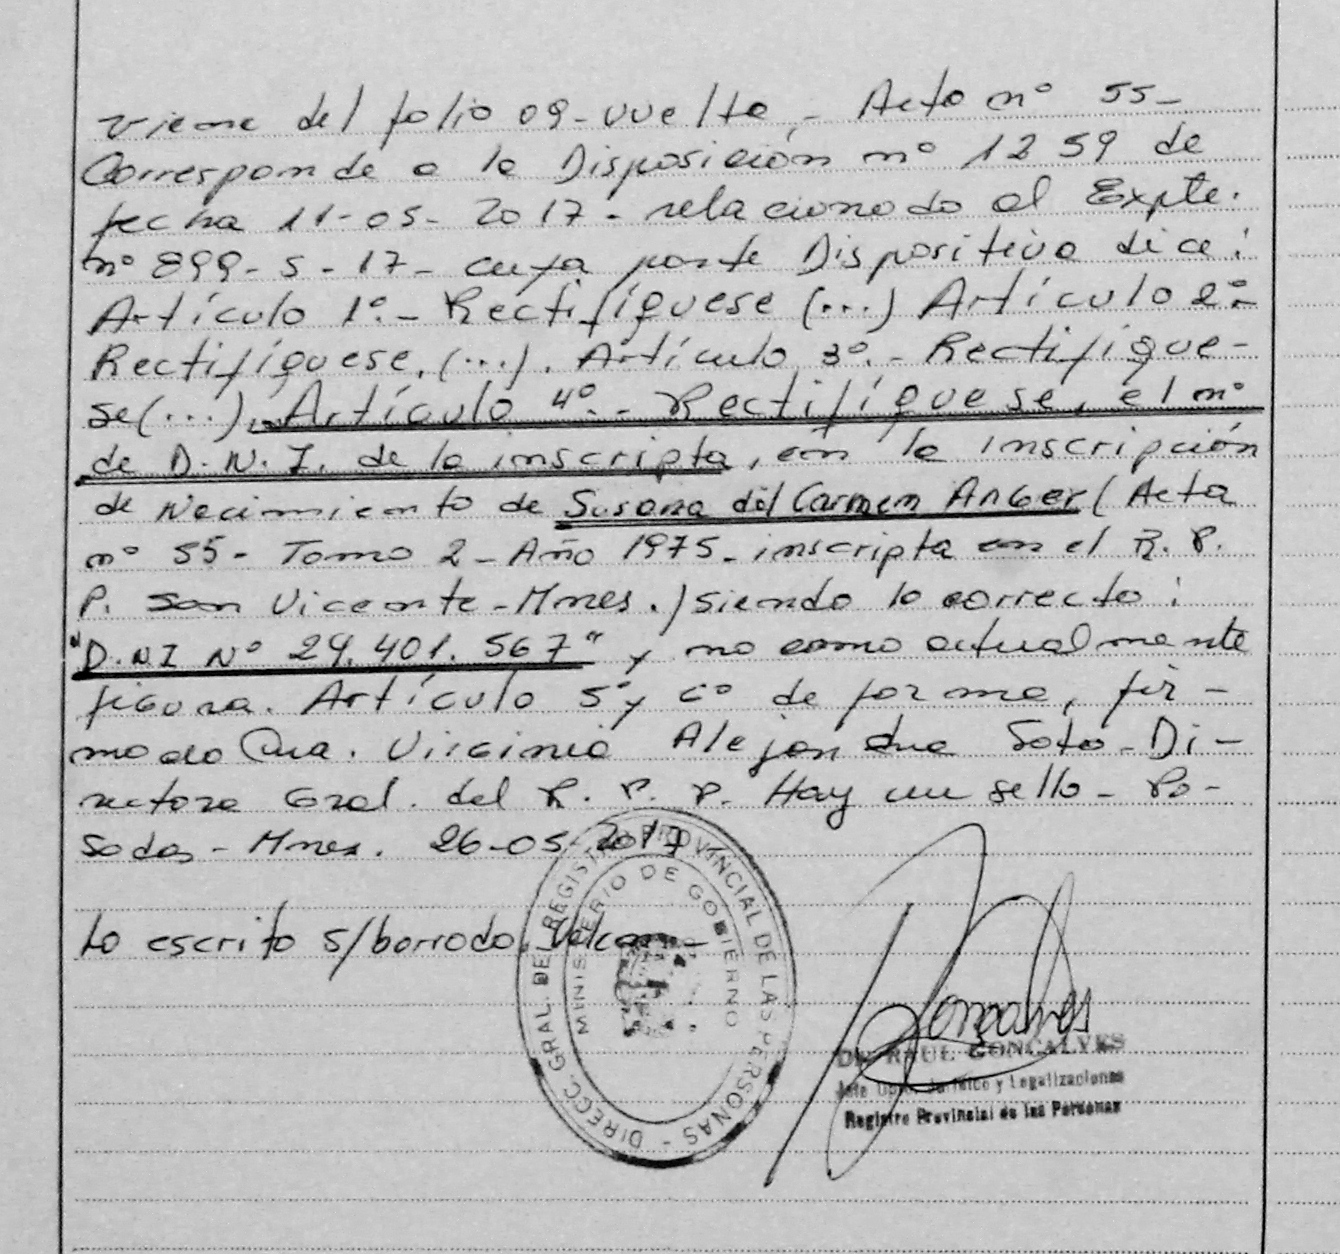 viene del folio 09-vuelta,- Acta nº 55-
Corresponde a la Disposición nº 1259 de
fecha 11-05-2017- relacionado al Expte.
nº 899-S-17- cuya parte Dispositiva dice:
Artículo 1º.- Rectifíquese (...) Artículo 2º-
Rectifíquese. (...). Artículo 3º.- Rectifíque-
se (...). Artículo 4º.- Rectifíquese, el nº
de D.N.I. de la inscripta, en la inscripción
de Nacimiento de Susana del Carmen Anger (Acta
nº 55- Tomo 2- Año 1975- inscripta en el R.P.
P. San Vicente-Mnes.) siendo lo correcto:
"D.N.I Nº 24.401.567" y no como actualmente
figura. Artículo 5º y 6º de forma, fir-
mado Dra. Virginia Alejandra Soto- Di-
rectora Gral. del R.P.P. Hay un sello- Po-
sadas- Mnes. 26-05-2017
Lo escrito s/borrado. Vale
DIRECC. GRAL. DE REGISTRO PROVINCIAL DE LAS PERSONAS -
MINISTERIO DE GOBIERNO
Dr. RAUL GONCALVES
Jefe Dpto. Jurídico y Legalizaciones
Registro Provincial de las Personas